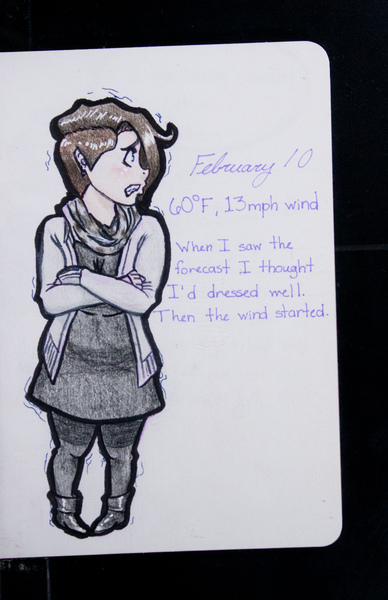 February 10
60°F, 13mph wind
When I saw the
forecast I thought
I'd dressed well.
Then the wind started.